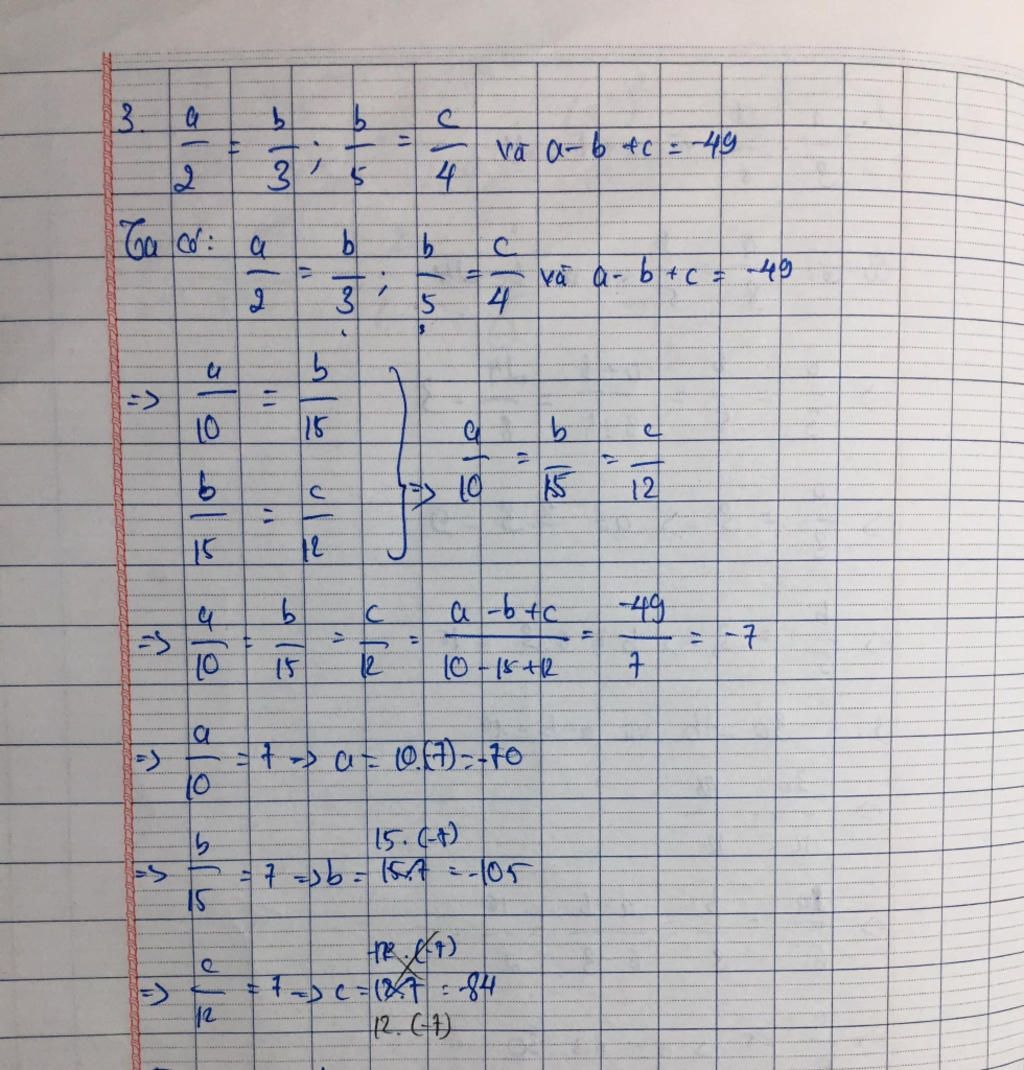 3. a/2 = b/3 ; b/5 = c/4 và a - b + c = -49
Ta có: a/2 = b/3 ; b/5 = c/4 và a - b + c = -49
=> a/10 = b/15
b/15 = c/12 } => a/10 = b/15 = c/12
=> a/10 = b/15 = c/12 = (a - b + c)/(10 - 15 + 12) = -49/7 = -7
=> a/10 = 7 => a = 10.(7) = -70
15.(-7)
=> b/15 = 7 => b = 15.7 = -105
12.(-7)
=> c/12 = 7 => c = 12.7 = -84
12.(-7)